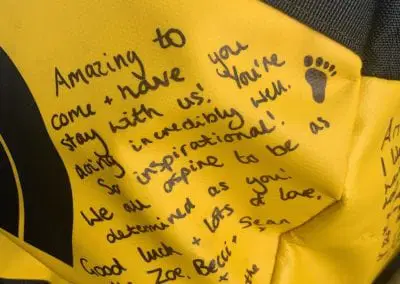 Amazing to
come + have you
stay with us! You're
doing incredibly well.
So inspirational!
We all aspire to be as
determined as you!
Good luck + lots of love,
Sean
Zoe, Becci +
+ the